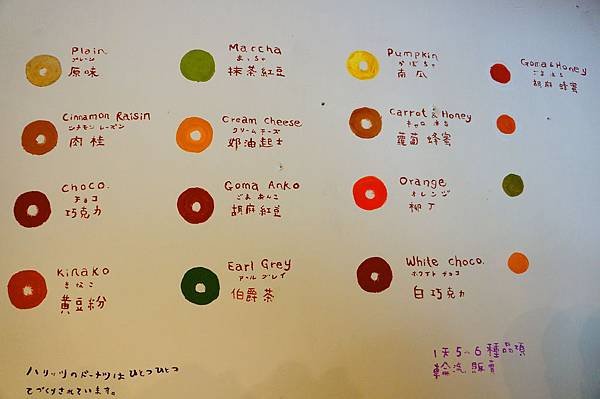 Plain
プレーン
原味
Marcha
まっちゃ
抹茶紅豆
Pumpkin
かぼちゃ
南瓜
Goma & Honey
ごま はち
胡麻 蜂蜜
Cinnamon Raisin
シナモン レーズン
肉桂
Cream Cheese
クリーム チーズ
奶油起士
Carrot & Honey
キャロ はち
蘿蔔 蜂蜜
Choco.
チョコ
巧克力
Goma Anko
ごま あんこ
胡麻紅豆
Orange
オレンジ
柳丁
Kinako
きなこ
黄豆粉
Earl Grey
アール グレイ
伯爵茶
White choco.
ホワイト チョコ
白巧克力
ハリッツのドーナツはひとつひとつ
てづくりされています。
1天5~6種品項
輪流 販賣